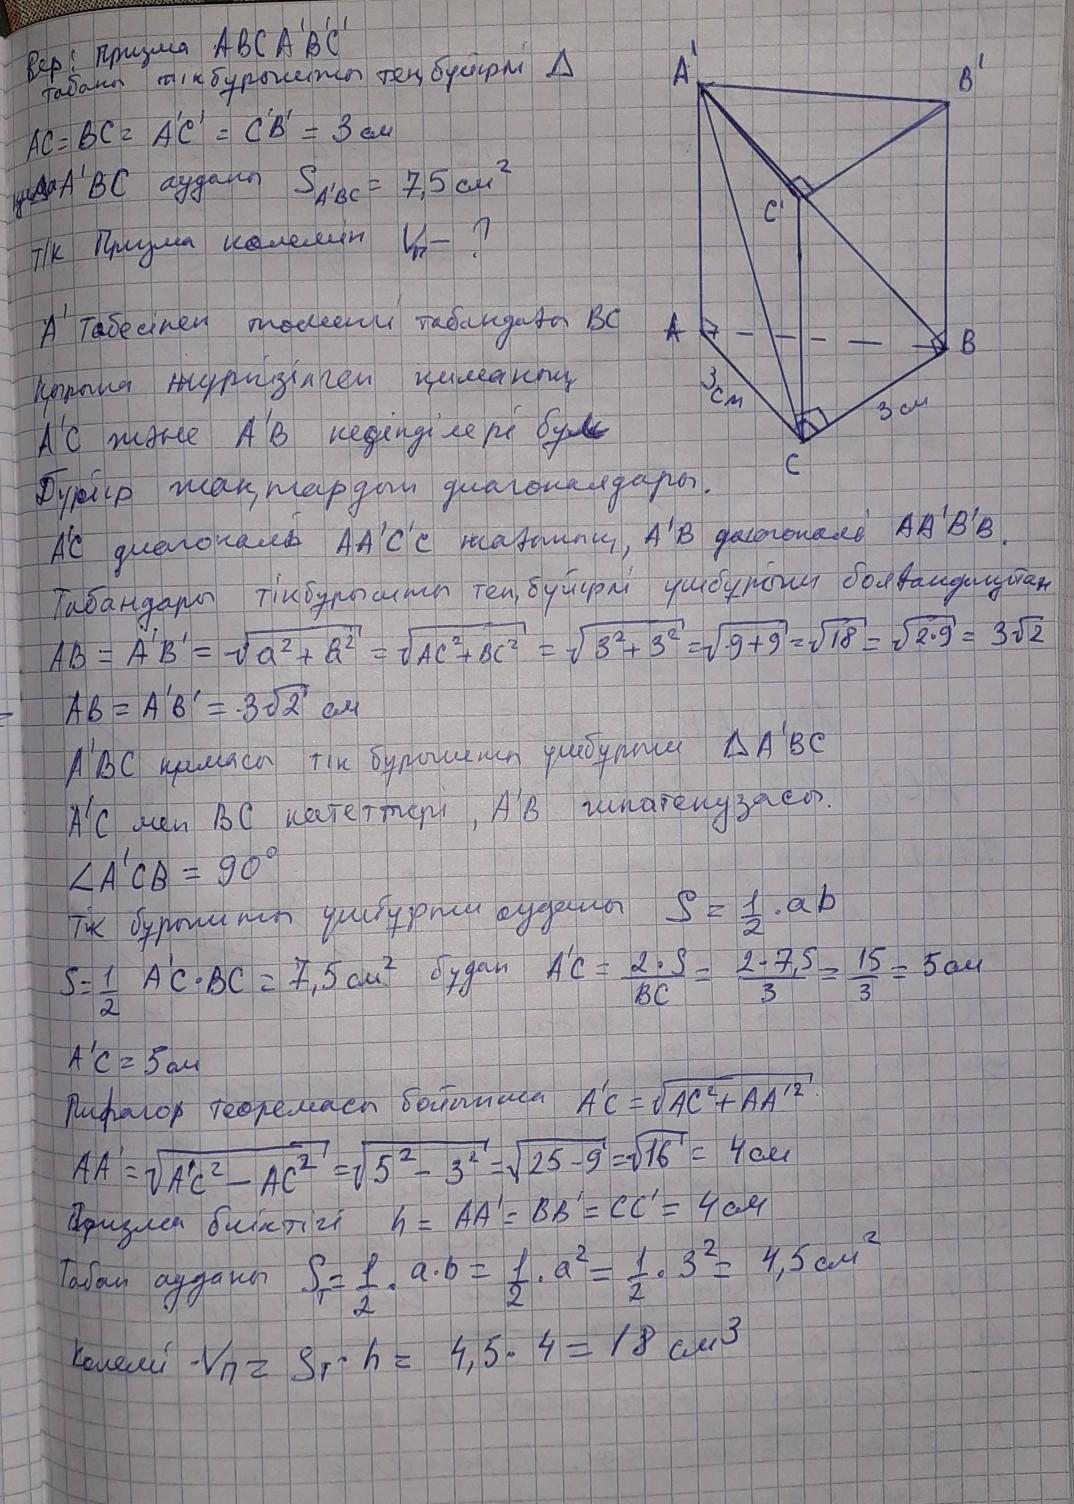 Бер: Призма ABCA'B'C'
табаны тікбұрышты теңбүйірлі Δ
AC = BC = A'C' = C'B' = 3 см
A'BC ауданы S A'BC = 7,5 см²
тік Призма көлемін Vп – ?
A' төбесінен төменгі табандағы BC
қырына жүргізілген қиманың
A'C және A'B кесінділері бұл
Бүйір жақтардың диагоналдары.
A'C диагоналі AA'C'C жағының, A'B диагоналі AA'B'B.
Табандары тікбұрышты тең бүйірлі үшбұрыш болғандықтан
AB = A'B' = √a² + a² = √AC² + BC² = √3² + 3² = √9 + 9 = √18 = √2·9 = 3√2
AB = A'B' = 3√2 см
A'BC қимасы тік бұрышты үшбұрыш Δ A'BC
A'C мен BC катеттері, A'B гипотенузасы.
∠A'CB = 90°
Тік бұрышты үшбұрыш ауданы S = 1/2 · ab
S = 1/2 A'C · BC = 7,5 см² бұдан A'C = 2·S/BC = 2·7,5/3 = 15/3 = 5 см
A'C = 5 см
Пифагор теоремасы бойынша A'C = √AC² + AA'²
AA' = √A'C² – AC² = √5² – 3² = √25 – 9 = √16 = 4 см
Призма биіктігі h = AA' = BB' = CC' = 4 см
Табан ауданы Sт = 1/2 · a·b = 1/2 · a² = 1/2 · 3² = 4,5 см²
Көлемі Vп = Sт · h = 4,5 · 4 = 18 см³
A'
B'
C'
A
B
3 см
3 см
C